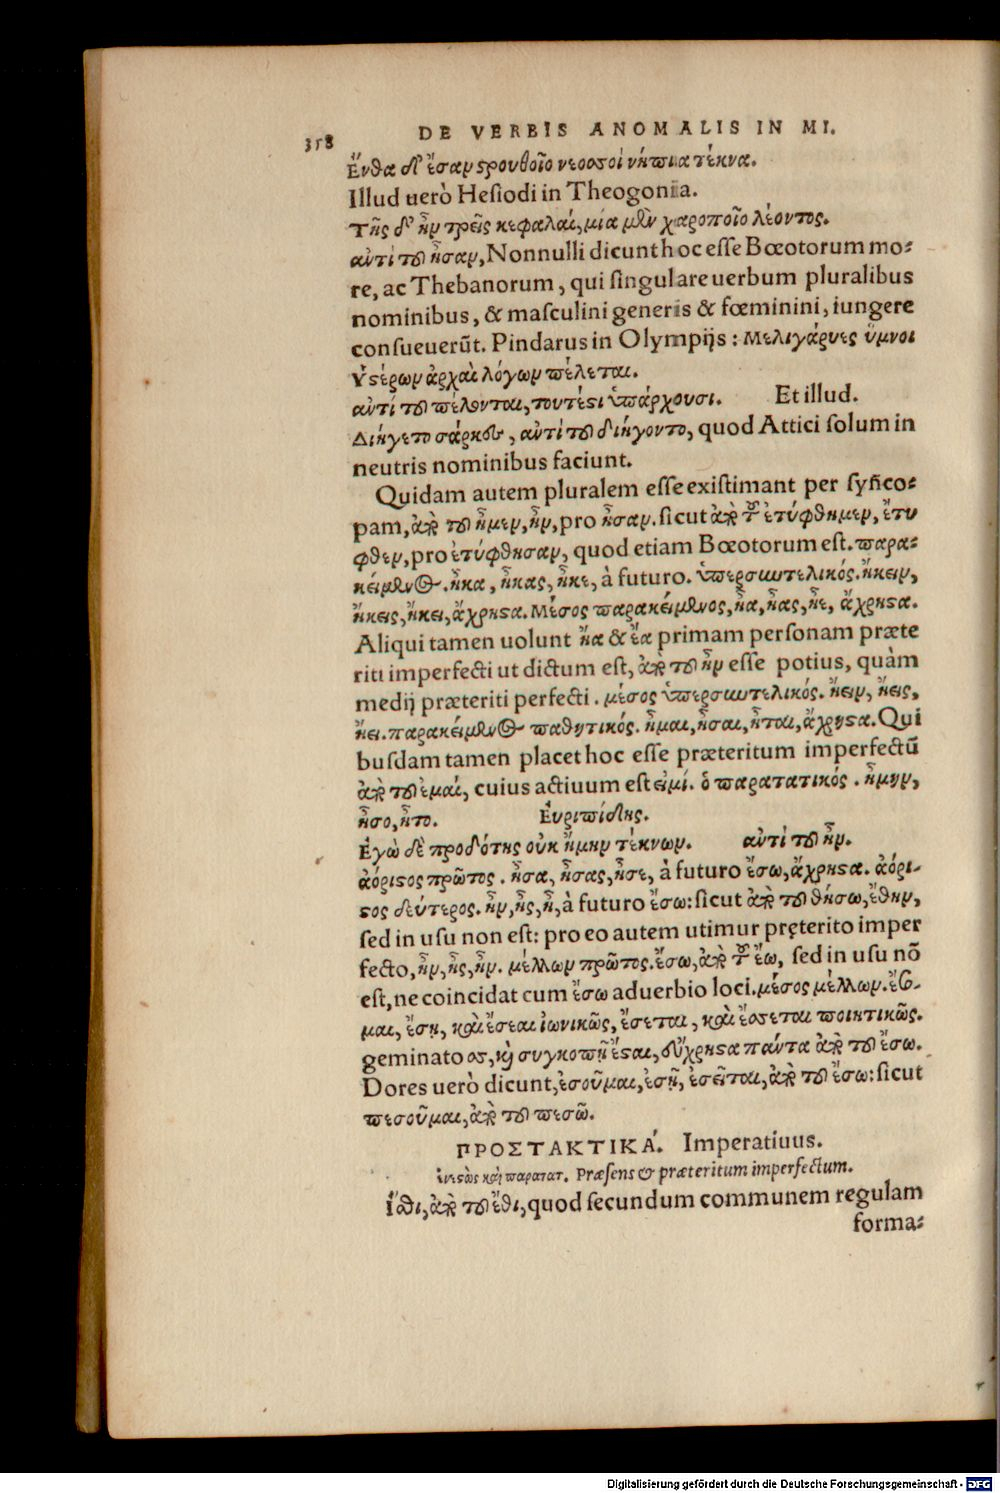 358 DE VERBIS ANOMALIS IN MI.
Ἔνθα δ' ἔσαν στρουθοῖο νεοσσοὶ νήπια τέκνα.
Illud uerò Hesiodi in Theogonia.
Τῆς δ' ἦν τρεῖς κεφαλαί, μία μὲν χαροποῖο λέοντος.
αὐτὶ τοῦ ἦσαν, Nonnulli dicunt hoc esse Bœotorum mo-
re, ac Thebanorum, qui singulare uerbum pluralibus
nominibus, & masculini generis & fœminini, iungere
consueuerũt. Pindarus in Olympijs: Μελιγάρυες ὕμνοι
Ὑστέρων ἀρχαὶ λόγων πέλεται.
αὐτί τοῦ πέλονται, τουτέστι ὑπάρχουσι. Et illud.
Διήγετο σάρκες, αὐτὶ τοῦ διήγοντο, quod Attici solum in
neutris nominibus faciunt.
Quidam autem pluralem esse existimant per synco-
pam, ἀπὸ τοῦ ἦμεν, ἦν, pro ἦσαν. sicut ἀπὸ τοῦ ἐτύφθημεν, ἔτυ
φθεν, pro ἐτύφθησαν, quod etiam Bœotorum est. παρα-
κείμενος. ἦκα, ἦκας, ἦκε, à futuro. ὑπερσυντελικός. ἤκειν,
ἤκεις, ἤκει, ἄχρηστα. Μέσος παρακείμενος, ἦα, ἦας, ἦε, ἄχρηστα.
Aliqui tamen uolunt ἤα & ἔα primam personam præte
riti imperfecti ut dictum est, ἀπὸ τοῦ ἦν esse potius, quàm
medij præteriti perfecti. μέσος ὑπερσυντελικός. ἤειν, ἤεις,
ἤει. παρακείμενος παθητικός. ἦμαι, ἦσαι, ἦται, ἄχρηστα. Qui
busdam tamen placet hoc esse præteritum imperfectũ
ἀπὸ τοῦ ἐμαί, cuius actiuum est εἰμί. ὁ παρατατικός. ἤμην,
ἦσο, ἦτο. Ἐυριπίδης.
Ἐγὼ δὲ προδότης οὐκ ἤμην τέκνων. αὐτὶ τοῦ ἦν.
ἀόριστος πρῶτος. ἦσα, ἦσας, ἦσε, à futuro ἔσω, ἄχρηστα. ἀόρι-
στος δεύτερος. ἦν, ἦς, ἦ, à futuro ἔσω: sicut ἀπὸ τοῦ θήσω, ἔθην,
sed in usu non est: pro eo autem utimur pręterito imper
fecto, ἦν, ἦς, ἦν. μέλλων πρῶτος. ἔσω, ἀπὸ τοῦ ἔω, sed in usu nõ
est, ne coincidat cum ἔσω aduerbio loci. μέσος μέλλων. ἔσο-
μαι, ἔσῃ, καὶ ἔσεαι ἰωνικῶς, ἔσεται, καὶ ἔσσεται ποιητικῶς.
geminato σσ, καὶ συγκοπῇ ἔσται, εὔχρηστα πάντα ἀπὸ τοῦ ἔσω.
Dores uerò dicunt, ἐσοῦμαι, ἐσῇ, ἐσεῖται, ἀπὸ τοῦ ἔσω: sicut
πεσοῦμαι, ἀπὸ τοῦ πεσῶ.
ΠΡΟΣΤΑΚΤΙΚΑ. Imperatiuus.
ἐνεστὼς καὶ παρατατ. Præsens & præteritum imperfectum.
Ἴσθι, ἀπὸ τοῦ ἔθι, quod secundum communem regulam
forma-
Digitalisierung gefördert durch die Deutsche Forschungsgemeinschaft - DFG